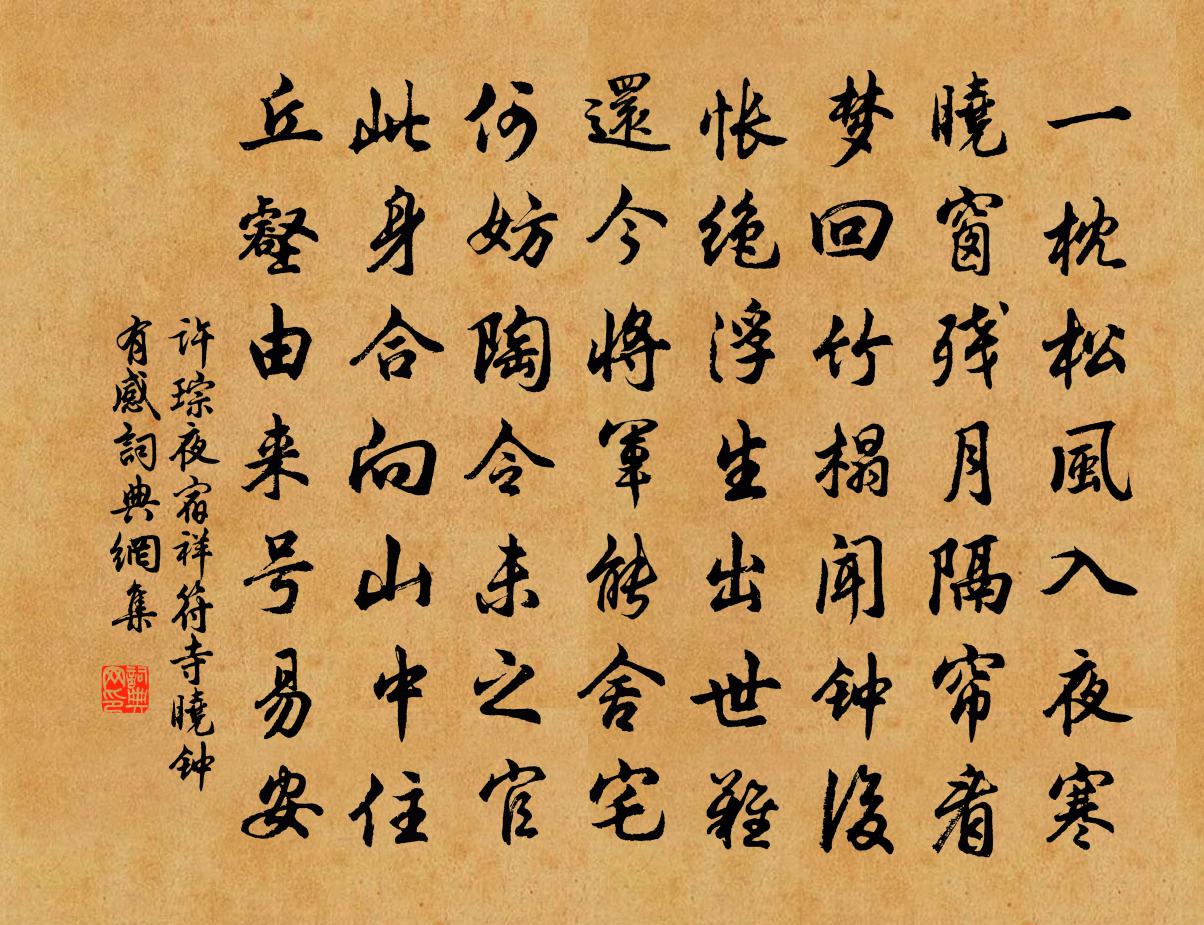 一枕松風入夜寒
曉窗残月隔帘看
梦回竹榻闻钟後
怅绝浮生出世難
還今将軍能舍宅
何妨陶令未之官
此身合向山中住
丘壑由来号易安
许琮夜宿祥符寺曉钟
有感詞典網集